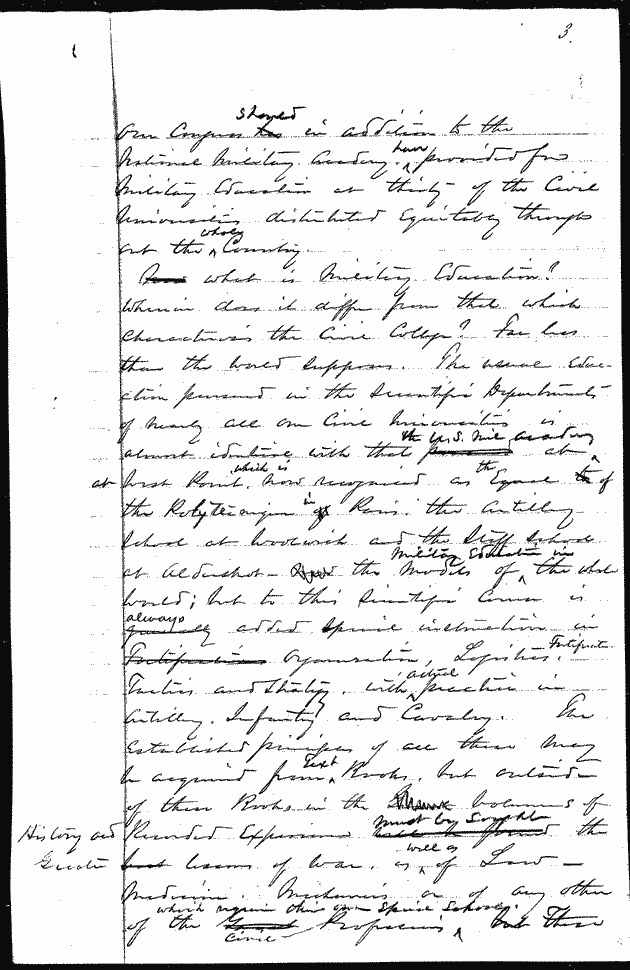 3.
stored
Our Congress has in addition to the
have
National Military Academy provided for
Military Education at thirty of the Civil
Universities distributed Equitably through
whole
out the Country.
what is Military Education?
Wherein does it differ from that which
characterises the Civil College? Far less
than the world supposes. The usual Edu-
cation pursued in the Scientific Departments
of nearly all our Civil Universities is
the U.S. Mil Academy
almost identical with that at
which is the
at West Point, now recognised as Equal to of
in
the Polytechnique of Paris. the Artillery
School at Woolwich and the Staff School
Military Education in
at Aldershot - the Models of the whole
world; but to this Scientific Course is
always
generally added special instruction in
Fortification Organisation, Logistics, Fortificatn
actual
Tactics and Strategy, with practice in
Artillery, Infantry and Cavalry. The
Established principles of all these may
Text
be acquired from Books, but outside
of these Books in the volumes of
must be sought
History and Recorded Experience found the
will as
Greater best lessons of War, as of Law -
Medicine, Mechanics or of any other
which require their own Special Schools.
of the Professions, but These
Civil